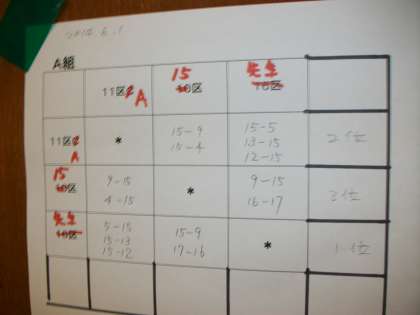 A組
11区 A
15 区
先生
11区 A
*
15-9
15-4
15-5
13-15
12-15
2位
15 区
9-15
4-15
*
9-15
16-17
3位
先生
5-15
15-13
15-12
15-9
17-16
*
1位